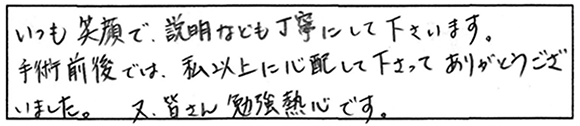 いつも笑顔で、説明なども丁寧にして下さいます。
手術前後では、私以上に心配して下さってありがとうござ
いました。 又、皆さん勉強熱心です。